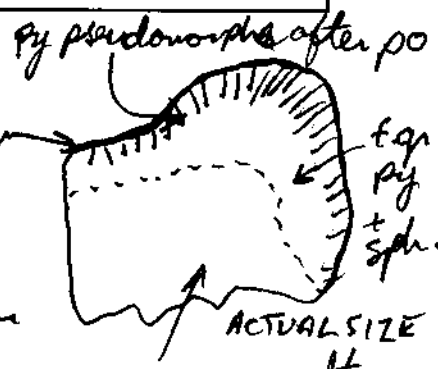 Py pseudomorphs after po
f.gr
py
+
Sph.
ACTUAL SIZE